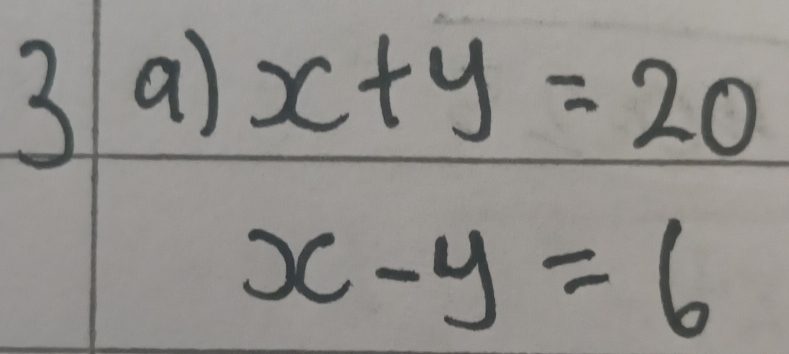 3 a) x + y = 20
x - y = 6